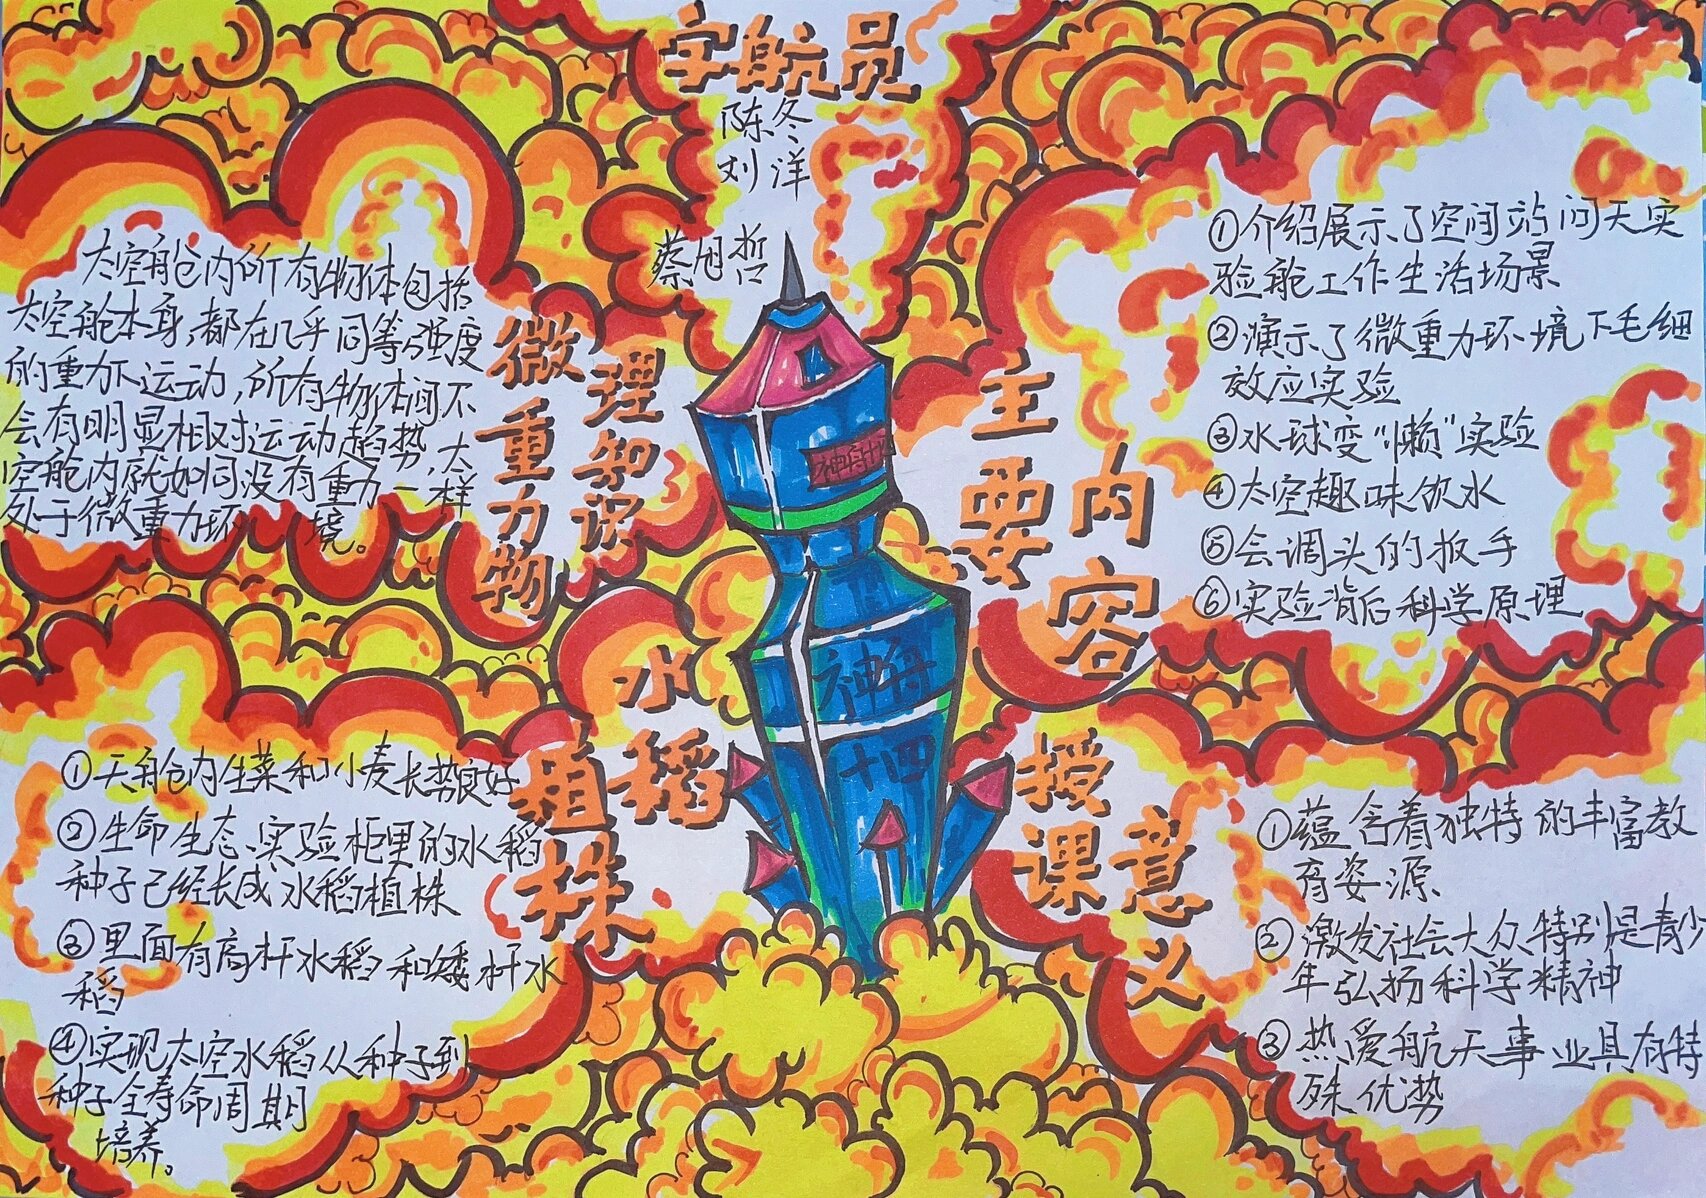 宇航员
陈冬
刘洋
蔡旭哲
太空舱内所有物体包括
太空舱本身,都在几乎同等强度
的重力下运动,所有物体间不
会有明显相对运动趋势,太
空舱内就如同没有重力一样
处于微重力环境。
微重力物
理知识
主要
内容
①介绍展示了空间站问天实
验舱工作生活场景
②演示了微重力环境下毛细
效应实验
③水球变“懒”实验
④太空趣味饮水
⑤会调头的扳手
⑥实验背后科学原理
神舟十
神舟
十四
水稻
植株
①天舱内生菜和小麦长势良好
②生命生态实验柜里的水稻
种子已经长成水稻植株
③里面有高杆水稻和矮杆水
稻
④实现太空水稻从种子到
种子全寿命周期
培养。
授课
意义
①蕴含着独特的丰富教
育资源
②激发社会大众特别是青少
年弘扬科学精神
③热爱航天事业具有特
殊优势